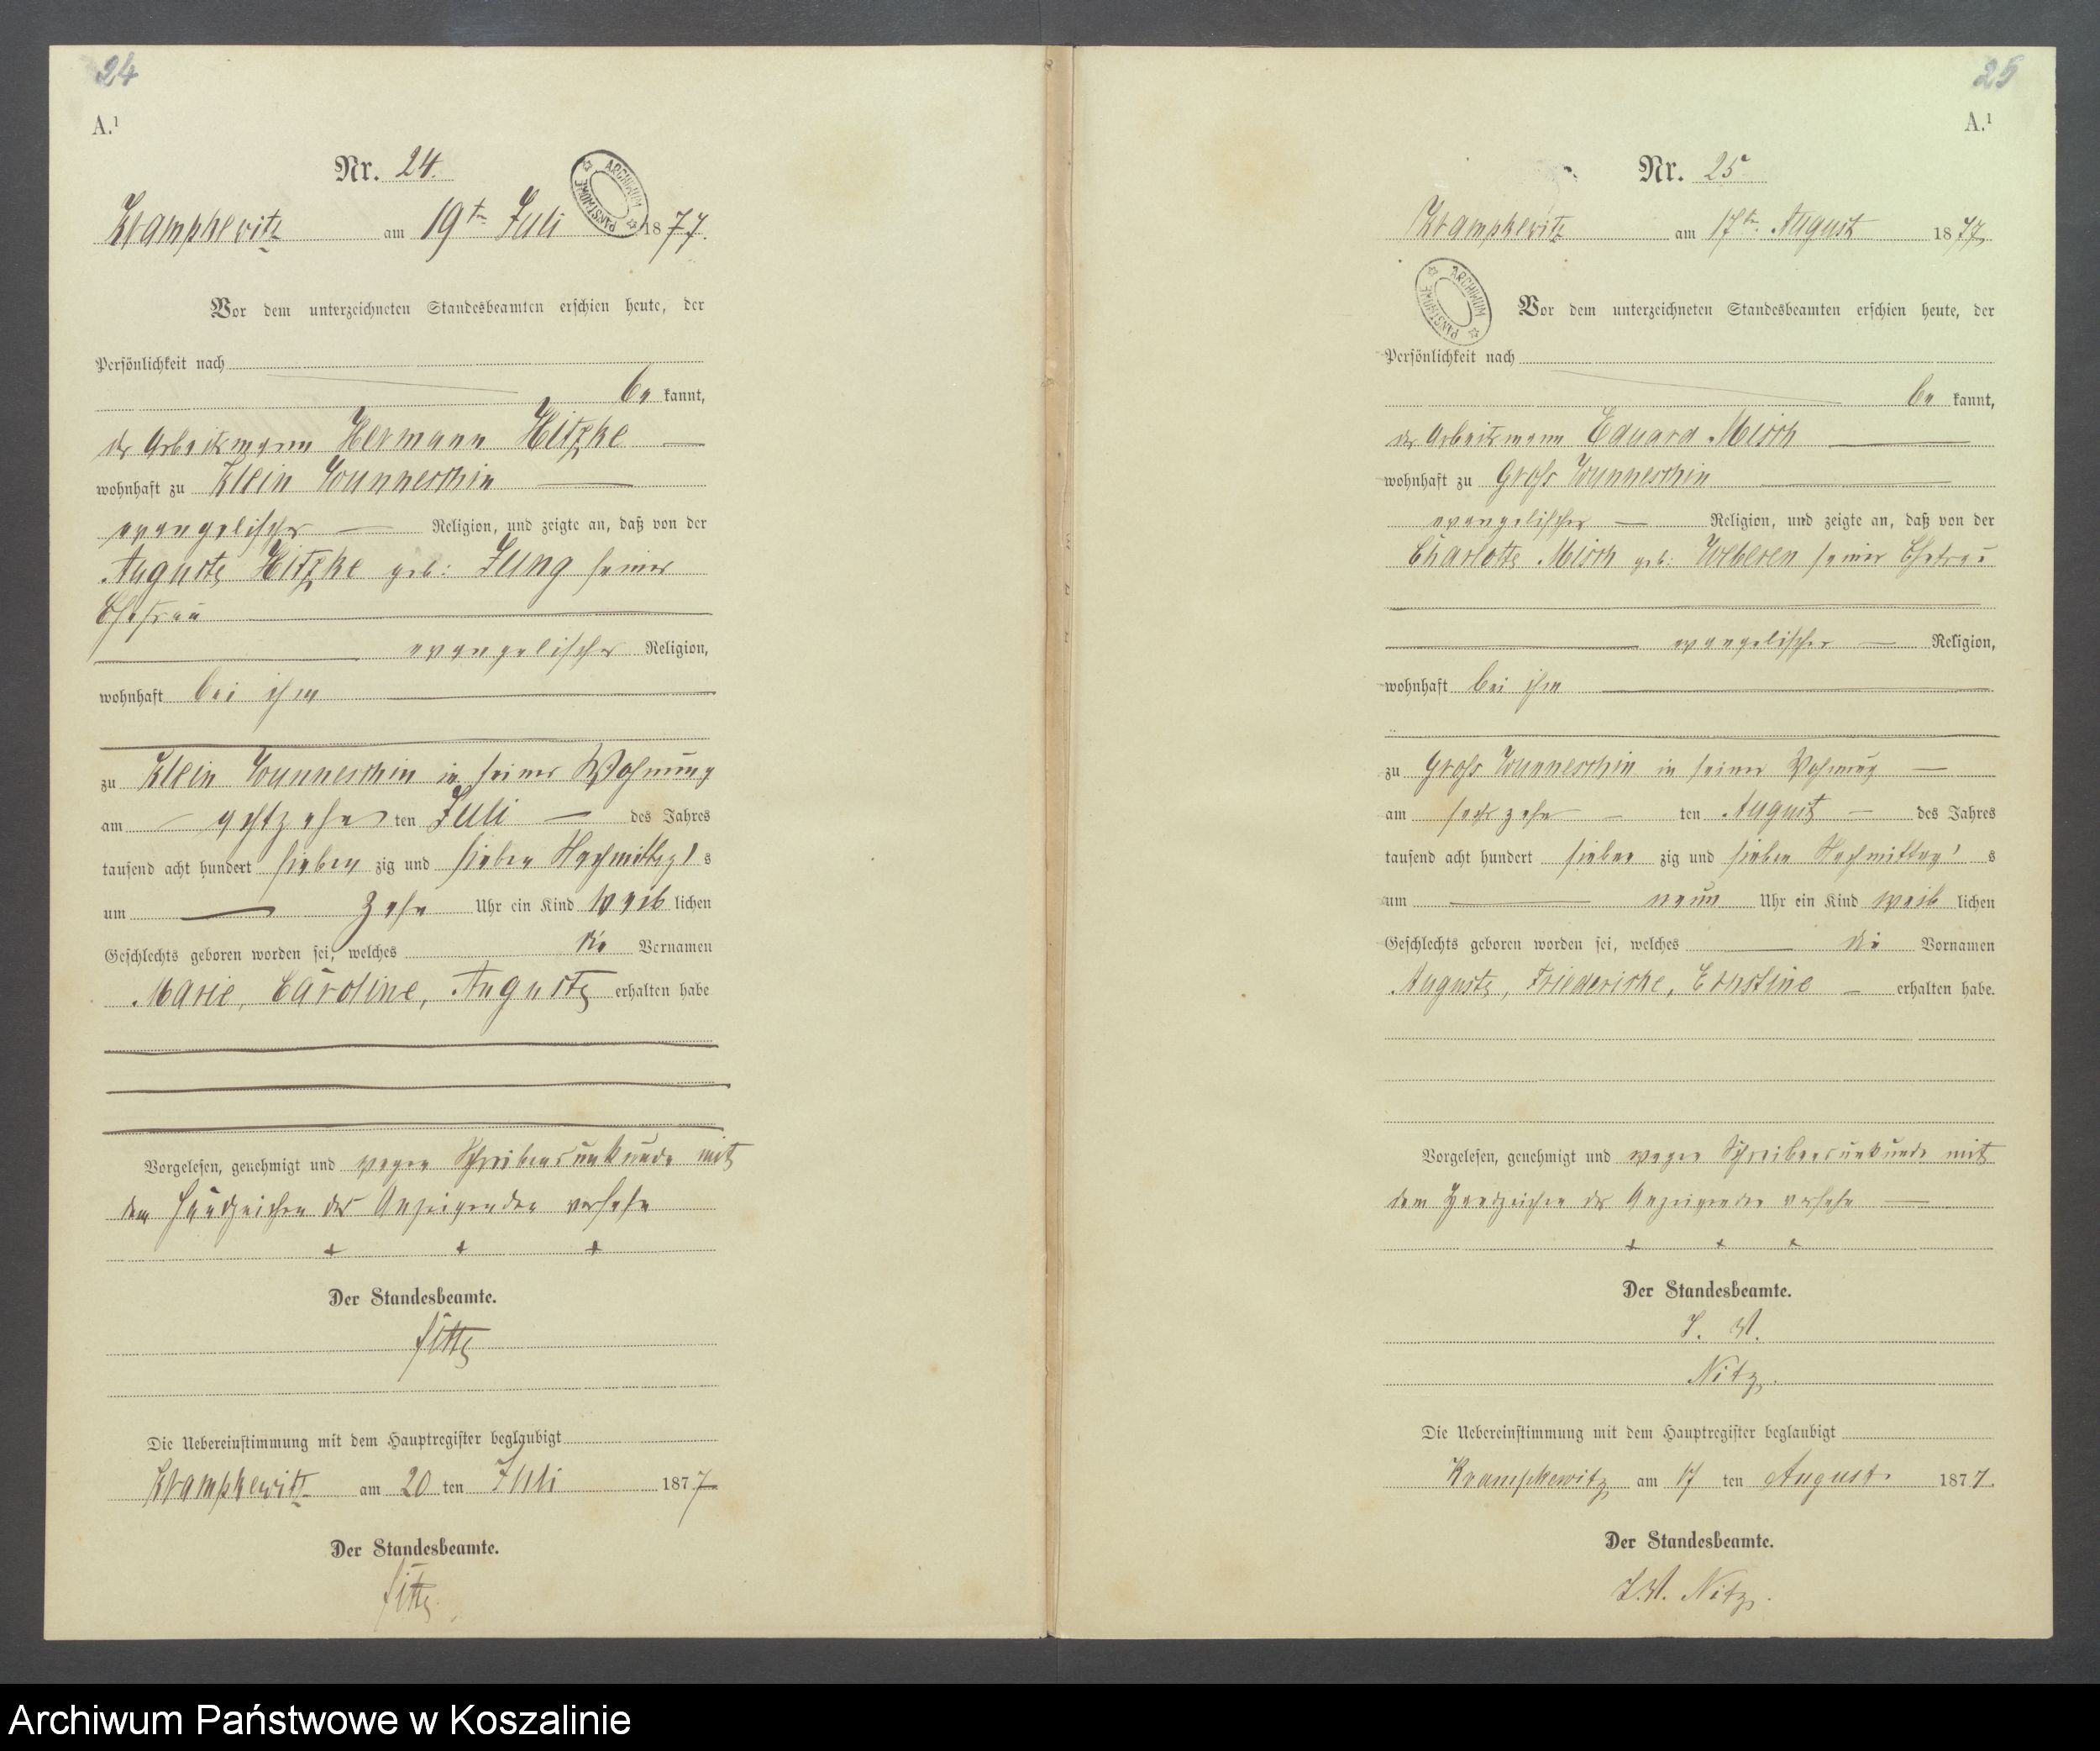 24
A.¹
Nr. 24.
Krampkewitz am 19ten Juli 1877.
ARCHIWUM PAŃSTWOWE
Vor dem unterzeichneten Standesbeamten erschien heute, der
Persönlichkeit nach
be kannt,
der Arbeitsmann Hermann Hitzke
wohnhaft zu Klein Wunneschin
evangelischer Religion, und zeigte an, daß von der
Auguste Hitzke geb: Jung seiner
Ehefrau
evangelischer Religion,
wohnhaft bei ihm
zu Klein Wunneschin in seiner Wohnung
am achtzehn ten Juli des Jahres
tausend acht hundert sieben zig und sieben Nachmittag s
um zehn Uhr ein Kind weib lichen
Geschlechts geboren worden sei, welches die Vornamen
Marie, Caroline, Auguste erhalten habe
Vorgelesen, genehmigt und wegen Schreibensunkunde mit
dem Handzeichen des Anzeigenden versehn
+ + +
Der Standesbeamte.
Die Uebereinstimmung mit dem Hauptregister beglaubigt
Krampkewitz am 20 ten Juli 1877
Der Standesbeamte.
25
A.¹
Nr. 25
Krampkewitz am 17ten August 1877
ARCHIWUM PAŃSTWOWE
Vor dem unterzeichneten Standesbeamten erschien heute, der
Persönlichkeit nach
be kannt,
der Arbeitsmann Eduard Misch
wohnhaft zu Gross Wunneschin
evangelischer Religion, und zeigte an, daß von der
Charlotte Misch geb: Weberen seiner Ehefrau
evangelischer Religion,
wohnhaft bei ihm
zu Gross Wunneschin in seiner Wohnung
am sechszehn ten August des Jahres
tausend acht hundert sieben zig und sieben Nachmittag s
um neun Uhr ein Kind weib lichen
Geschlechts geboren worden sei, welches die Vornamen
Auguste, Friedericke, Ernstine erhalten habe.
Vorgelesen, genehmigt und wegen Schreibensunkunde mit
dem Handzeichen des Anzeigenden versehn
+ + +
Der Standesbeamte.
I. V.
Nitz.
Die Uebereinstimmung mit dem Hauptregister beglaubigt
Krampkewitz am 17 ten August 1877.
Der Standesbeamte.
I. V. Nitz.
Archiwum Państwowe w Koszalinie